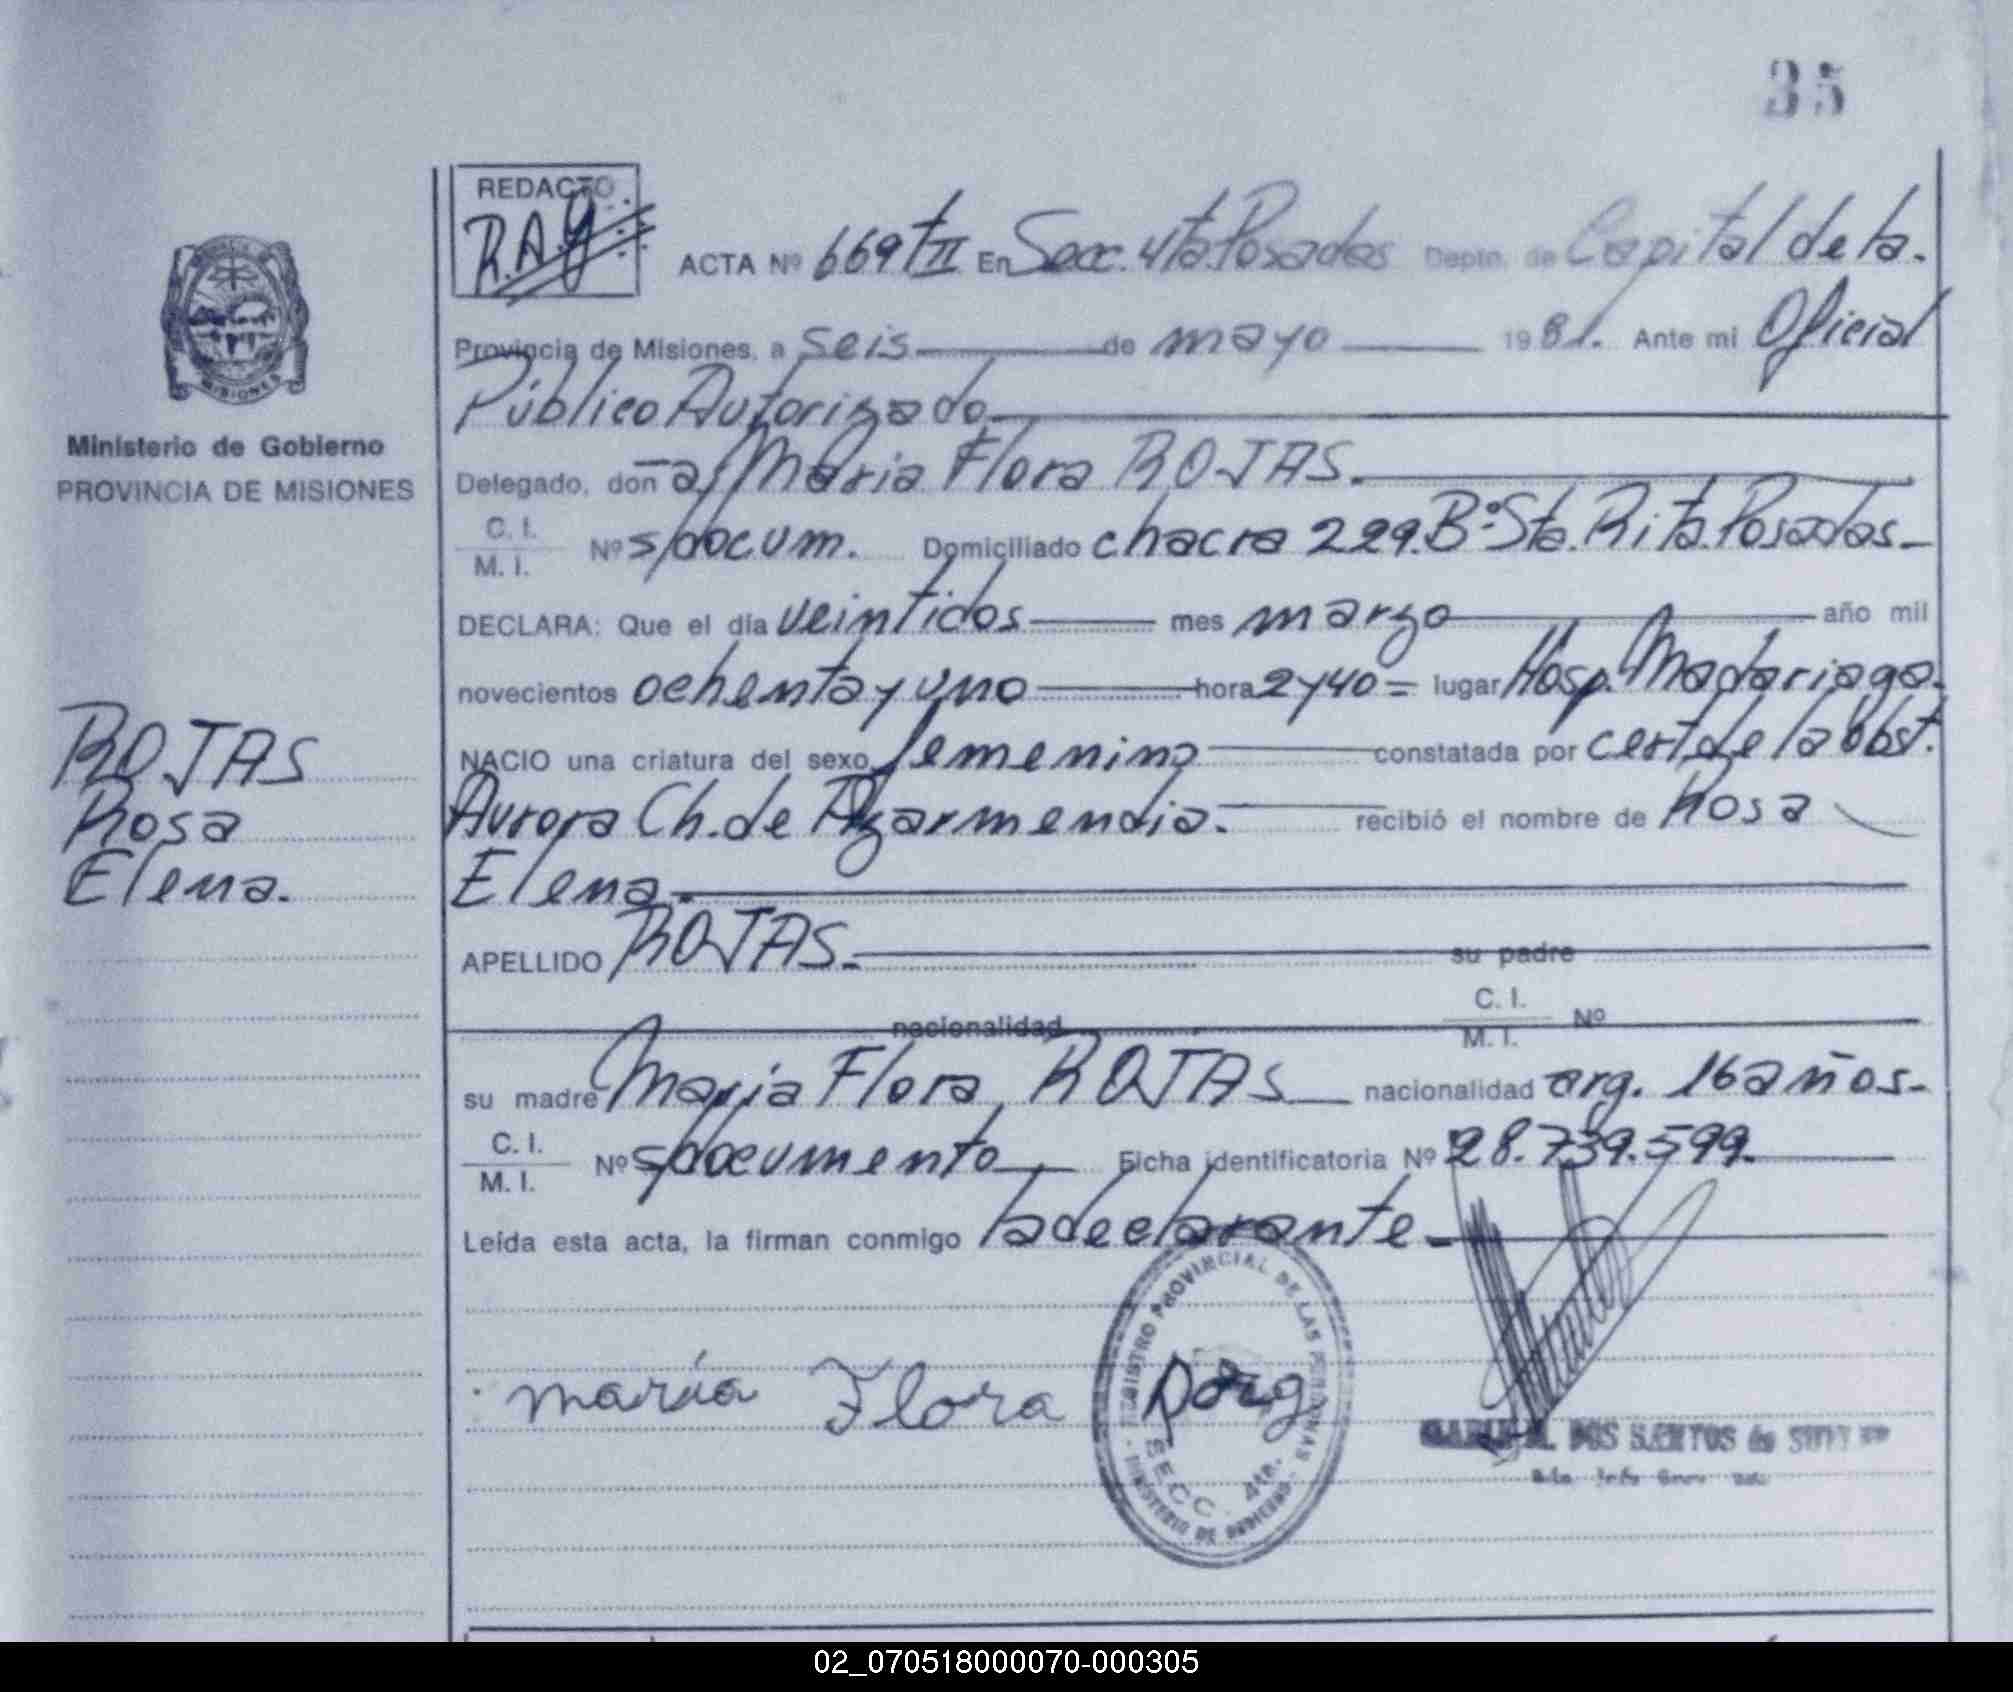 35
REDACTO
R.A.G
ACTA Nº 669 tII En Secc. 4ta. Posadas Depto. de Capital de la.
Provincia de Misiones, a seis de mayo 1981. Ante mi Oficial
Público Autorizado.
Ministerio de Gobierno
PROVINCIA DE MISIONES
MISIONES
Delegado, don-a, Maria Flora ROJAS.
C. I.
M. I. Nº s/docum. Domiciliado chacra 229. Bº Sta. Rita. Posadas-
DECLARA: Que el dia veintidos mes marzo año mil
novecientos ochenta y uno hora 2 y 40= lugar Hosp. Madariaga.
NACIO una criatura del sexo femenino constatada por cert de la obst.
Aurora Ch. de Azarmendia. recibió el nombre de Rosa
Elena.
ROJAS
Rosa
Elena.
APELLIDO ROJAS. su padre
nacionalidad C. I.
M. I. Nº
su madre Maria Flora ROJAS nacionalidad arg. 16 años-
C. I.
M. I. Nº s/documento Ficha identificatoria Nº 28.739.599.
Leída esta acta, la firman conmigo la declarante-
REGISTRO PROVINCIAL DE LAS PERSONAS
SECC. 4ta.
MINISTERIO DE GOBIERNO
maría Flora
DOS SANTOS de
02_070518000070-000305